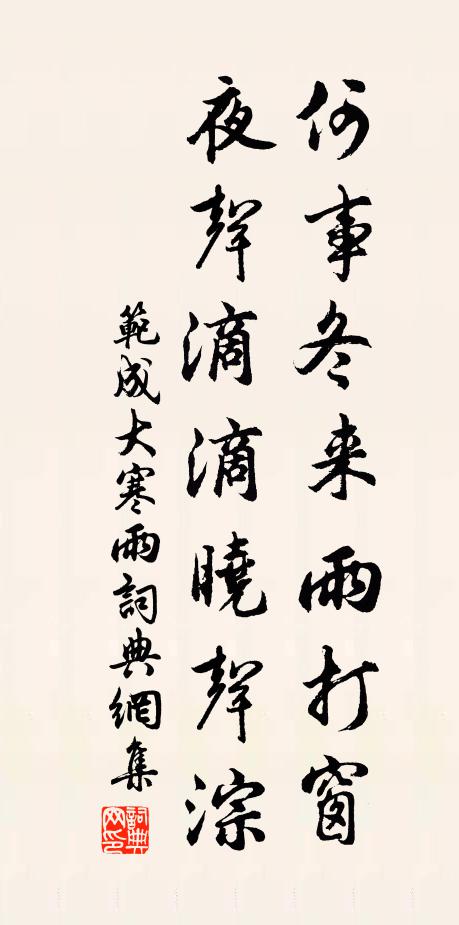 何事冬来雨打窗
夜聲滴滴曉聲淙
範成大寒雨詞典網集
詞典网印